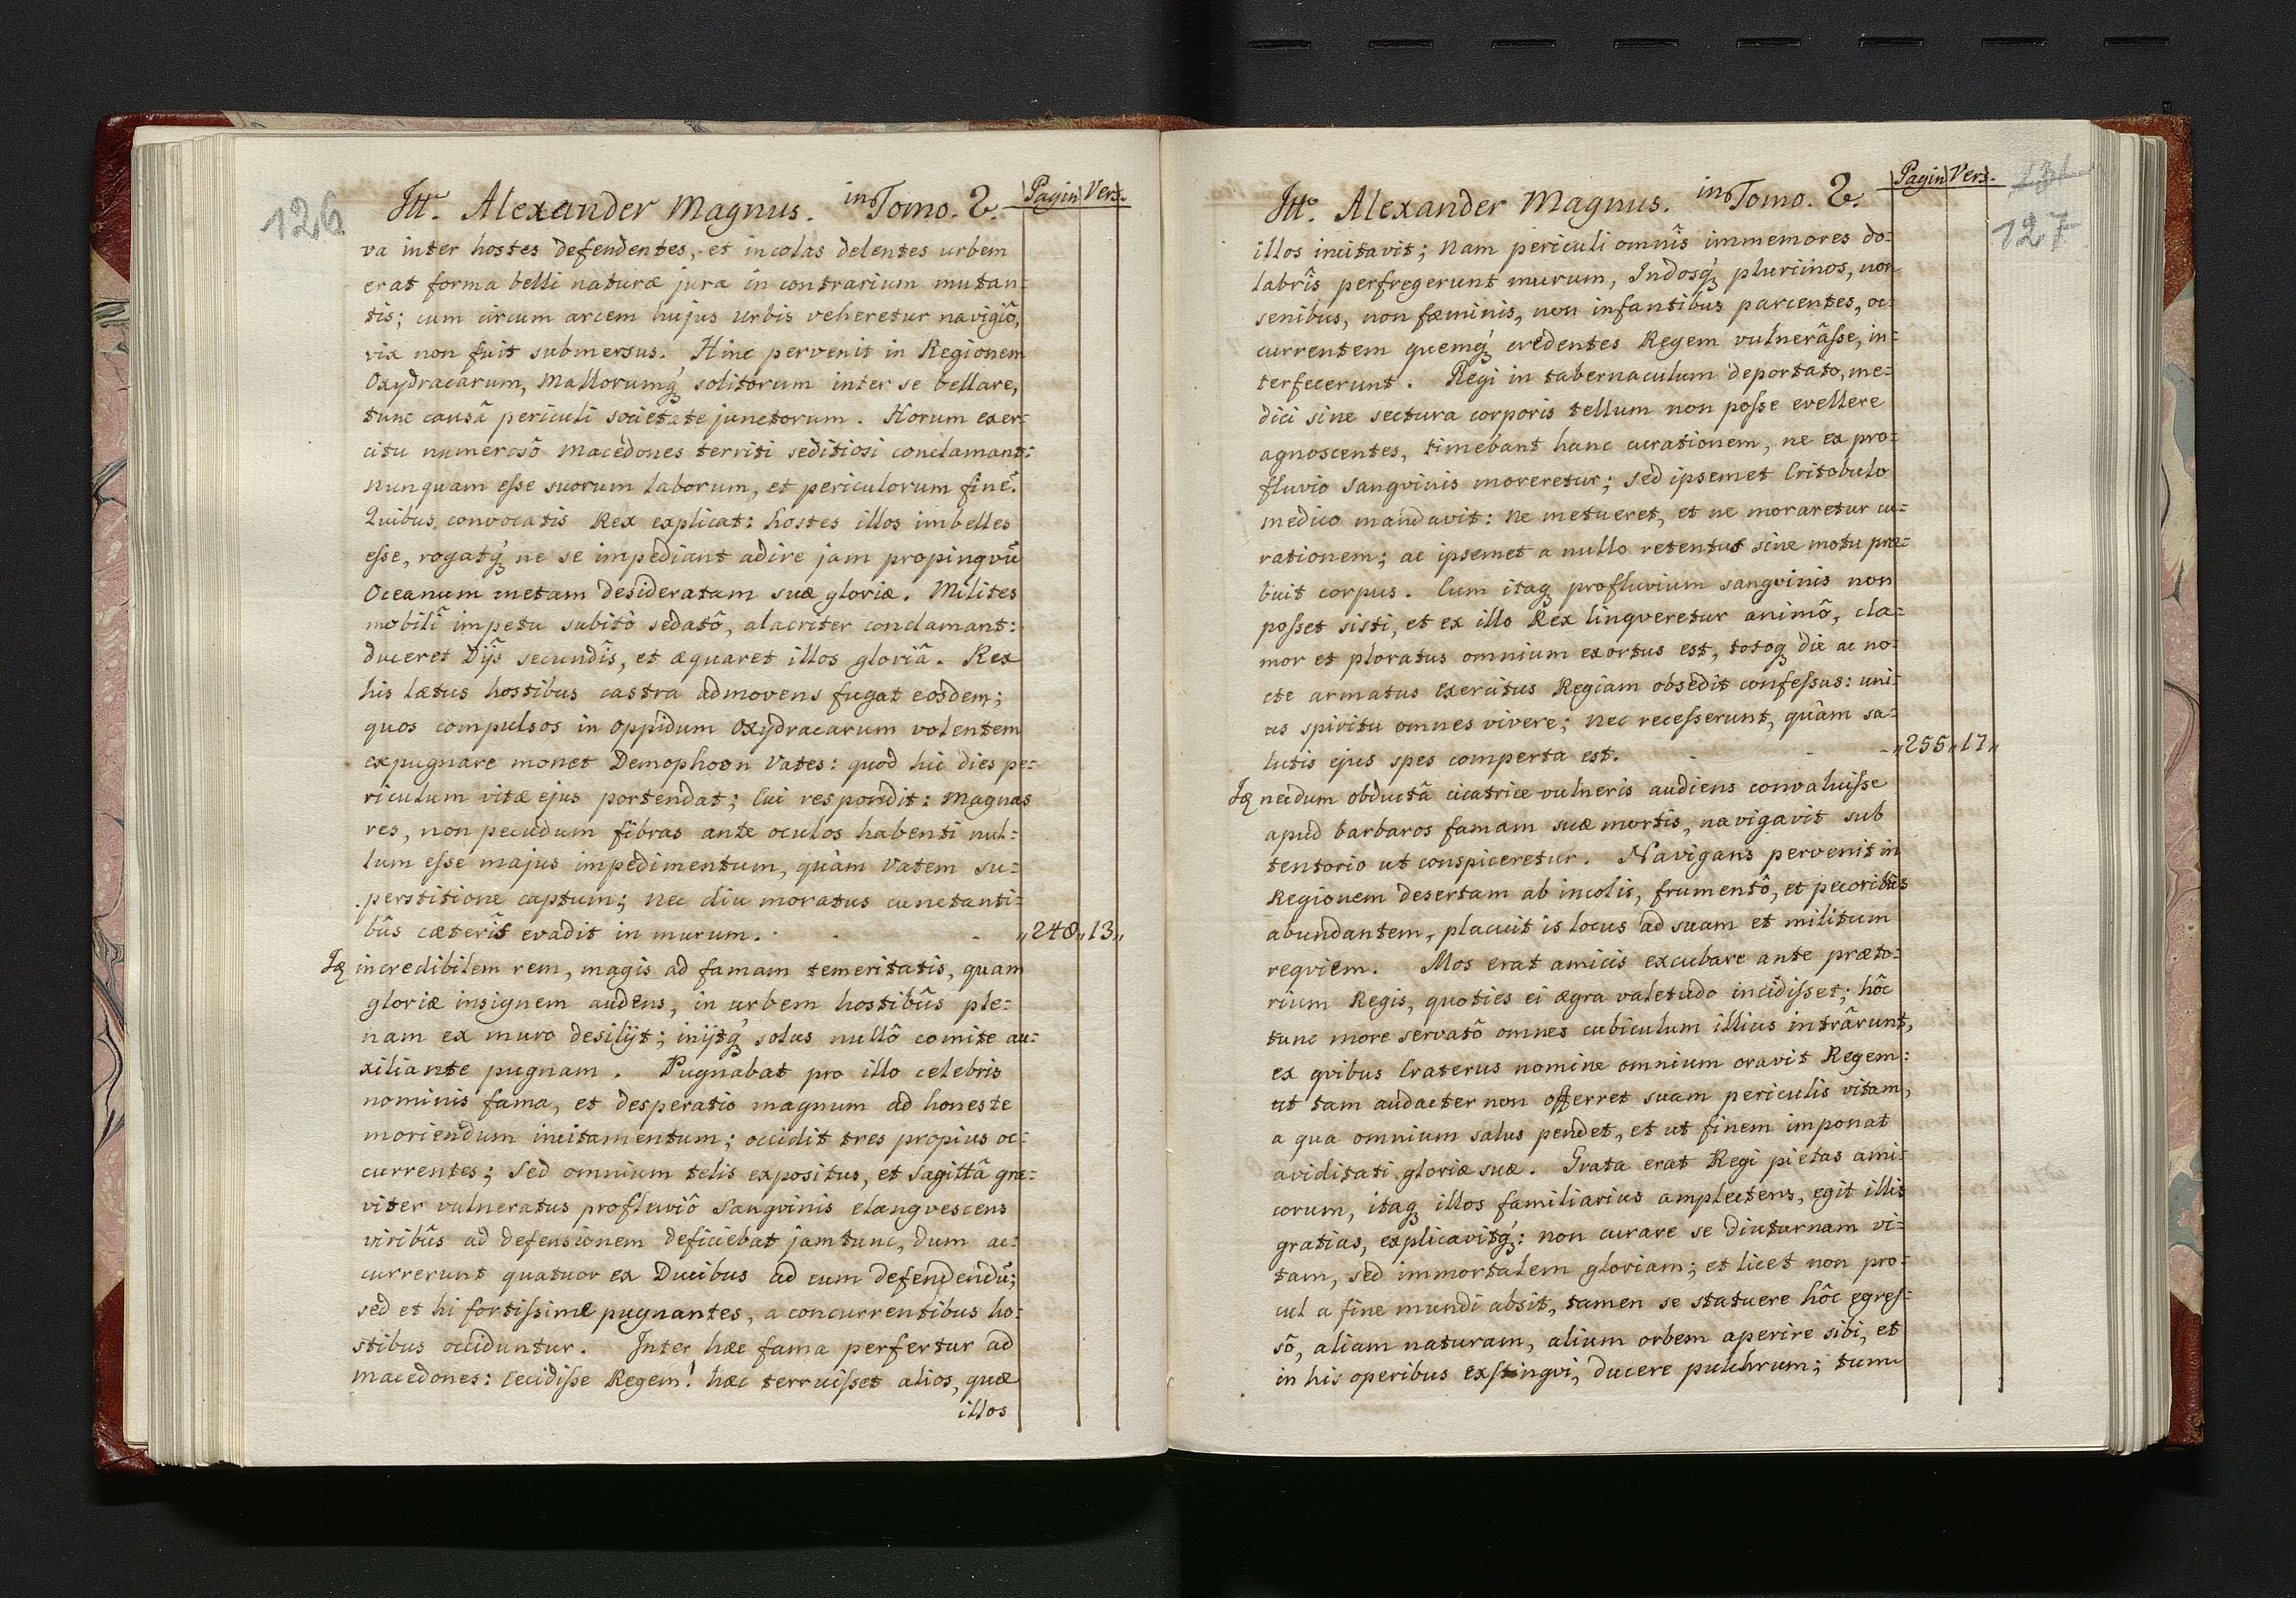 126
Itt. Alexander Magnus. in Tomo. 2. Pagin Vers.
va inter hostes defendentes, et incolas delentes urbem
erat forma belli naturæ jura in contrarium mutan=
tis; cum circum arcem hujus urbis veheretur navigiô,
vix non fuit submersus. Hinc pervenit in Regionem
Oxydracarum, Mallorumq́ꝫ solitorum inter se bellare,
tunc causâ periculi societate junctorum. Horum exer=
citu numerosô Macedones territi seditiosi conclamant:
nunquam eſse suorum laborum, et periculorum finē.
Quibus convocatis Rex explicat: hostes illos imbelles
eſse, rogatq́ꝫ ne se impediant adire jam propinqvū
Oceanum metam desideratam suæ gloriæ. Milites
mobilî impetu subitò sedatô, alacriter conclamant:
duceret Dijs secundîs, et æquaret illos gloriâ. Rex
his lætus hostibus castra admovens fugat eosdem;
quos compulsos in oppidum Oxydracarum volentem
expugnare monet Demophoon Vates: quod hic dies pe=
riculum vitæ ejus portendat; Cui respondit: Magnas
res, non pecudum fibras ante oculos habenti nul=
lum eſse majus impedimentum, quàm Vatem su=
perstitione captum; nec diu moratus cunctanti=
bûs cæterîs evadit in murum. „248„13„
Iꝫ incredibilem rem, magis ad famam temeritatis, quam
gloriæ insignem audens, in urbem hostibûs ple=
nam ex muro desilijt; inijtq́ꝫ solus nullô comite au=
xiliante pugnam. Pugnabat pro illo celebris
nominis fama, et desperatio magnum ad honeste
moriendum incitamentum; occidit tres propius oc=
currentes; sed omnium telis expositus, et sagittâ gra=
viter vulneratus profluviô sangvinis elangvescens
viribûs ad defensionem deficiebat jam tunc, dum ac=
currerunt quatuor ex Ducibus ad eum defendendū;
sed et hi fortiſsime pugnantes, a concurrentibus ho=
stibus occiduntur. Inter hæc fama perfertur ad
Macedones: Cecidiſse Regem! hæc terruiſset alios, quæ
illos
Itt. Alexander Magnus. in Tomo. 2. Pagin Vers. 131
127
illos incitavit; Nam periculi omnîs immemores do=
labrîs perfregerunt murum, Indosq́ꝫ plurimos, non
senibus, non fæminis, non infantibus parcentes, oc=
currentem quemq́ꝫ credentes Regem vulnerâſse, in=
terfecerunt. Regi in tabernaculum deportato, me=
dici sine sectura corporis tellum non poſse evellere
agnoscentes, timebant hanc curationem, ne ex pro=
fluvio sangvinis moreretur; sed ipsemet Critobulo
medico mandavit: ne metueret, et ne moraretur cu=
rationem; ac ipsemet a nullo retentus sine motu præ=
buit corpus. Cum itaqꝫ profluvium sangvinis non
poſset sisti, et ex illo Rex linqveretur animô, cla=
mor et ploratus omnium exortus est, totoqꝫ die ac no=
cte armatus Exercitus Regiam obsedit confeſsus: uni=
us spiritu omnes vivere; nec receſserunt, quàm sa=
lutis ejus spes comperta est. „255„17„
Iꝫ necdum obductâ cicatrice vulneris audiens convaluiſse
apud barbaros famam suæ mortis, navigavit sub
tentorio ut conspiceretur. Navigans pervenit in
Regionem desertam ab incolis, frumentô, et pecoribûs
abundantem, placuit is locus ad suam et militum
reqviem. Mos erat amicis excubare ante præto=
rium Regis, quoties ei ægra valetudo incidiſset; hôc
tunc more servatô omnes cubiculum illius intrârunt,
ex qvibus Craterus nomine omnium oravit Regem:
ut tam audacter non offerret suam periculis vitam,
a qua omnium salus pendet, et ut finem imponat
aviditati gloriæ suæ. Grata erat Regi pietas ami=
corum, itaqꝫ illos familiarius amplectens, egit illis
gratias, explicavitq́ꝫ: non curare se diuturnam vi=
tam, sed immortalem gloriam; et licet non pro=
cul a fine mundi absit, tamen se statuere hôc egreſ=
sô, aliam naturam, alium orbem aperire sibi, et
in his operibus exstingvi, ducere pulchrum; tum